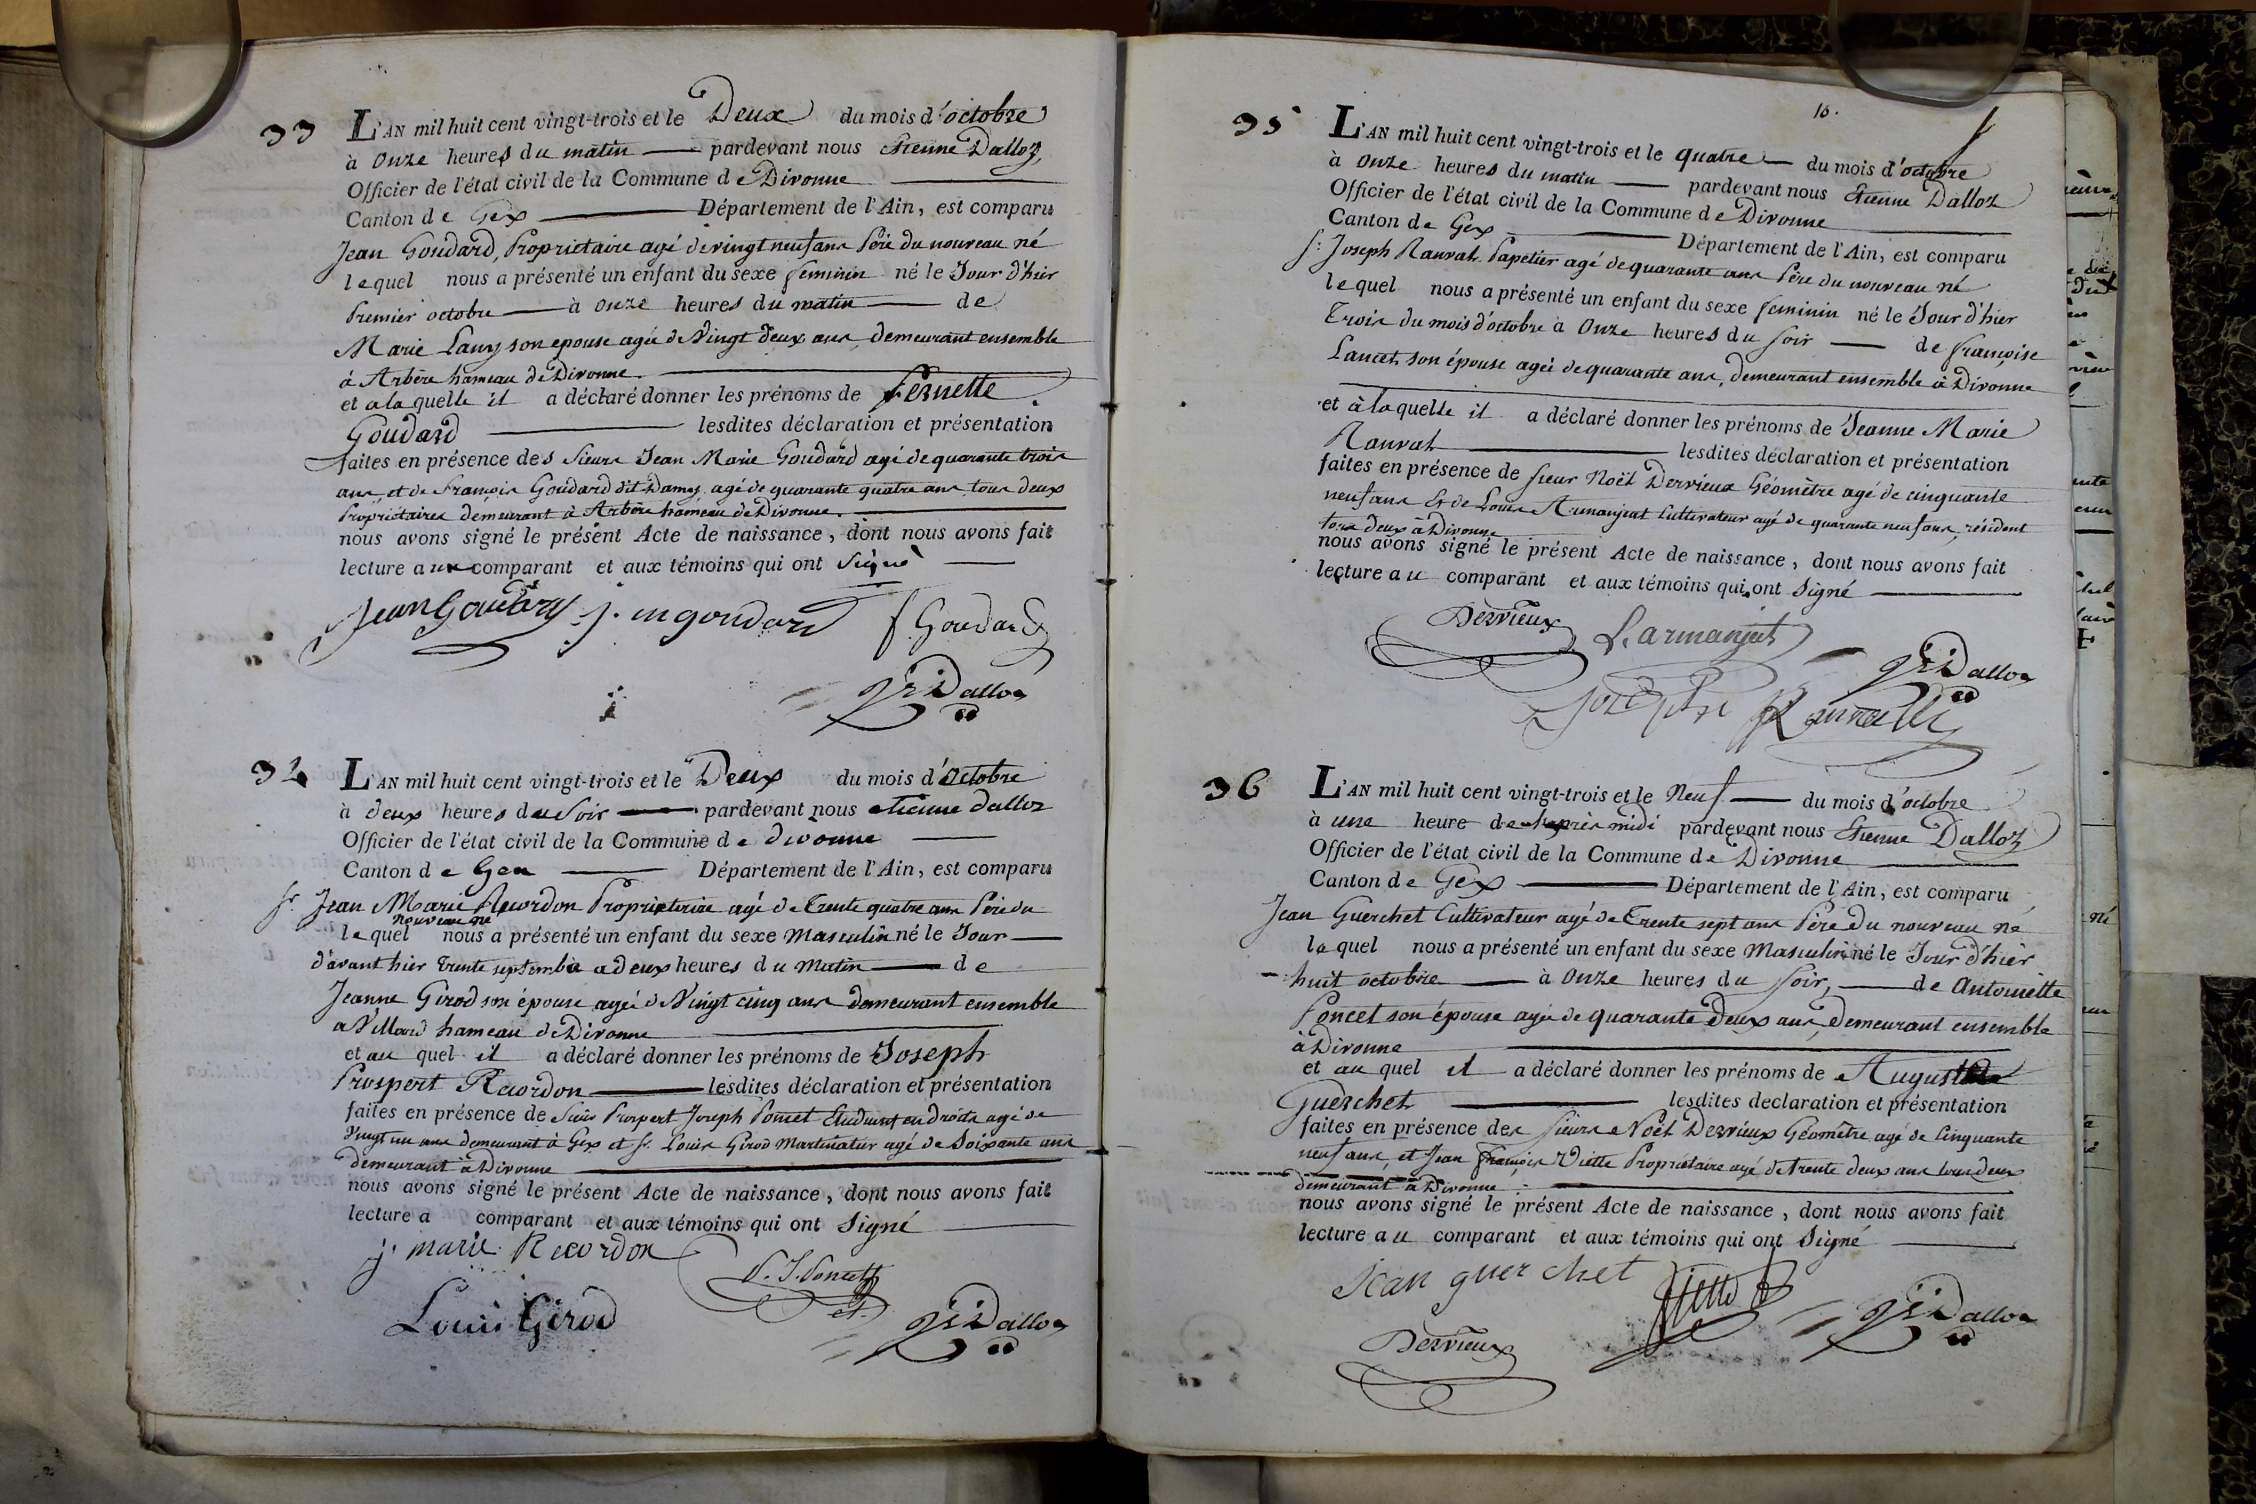 33
L'AN mil huit cent vingt-trois et le Deux du mois d'octobre
à Onze heures du matin — pardevant nous Etienne Dalloz,
Officier de l'état civil de la Commune de Divonne —
Canton de Gex — Département de l'Ain, est comparu
Jean Goudard, Proprietaire agé de vingt neuf ans Père du nouveau né
lequel nous a présenté un enfant du sexe feminin né le Jour d'hier
Premier octobre — à onze heures du matin — de
Marie Lany son epouse agée de Vingt deux ans, demeurant ensemble
à Arbère hameau de Divonne. —
et a la quelle il a déclaré donner les prénoms de Pernette
Goudard — lesdites déclaration et présentation
faites en présence des Sieurs Jean Marie Goudard agé de quarante trois
ans, et de François Goudard dit Damy agé de quarante quatre ans tous deux
Propriétaires demeurant à Arbère hameau de Divonne. —
nous avons signé le présent Acte de naissance, dont nous avons fait
lecture aux comparant et aux témoins qui ont Signé —
Jean Goudard j. m goudard f Goudard
Dalloz
34
L'AN mil huit cent vingt-trois et le Deux du mois d'Octobre
à deux heures du Soir — pardevant nous etienne dalloz
Officier de l'état civil de la Commune de divonne —
Canton de Gex — Département de l'Ain, est comparu
Sr. Jean Marie Recordon Proprietaire agé de Trente quatre ans Père du
nouveau né
lequel nous a présenté un enfant du sexe Masculin né le Jour —
d'avant hier Trente septembre a deux heures du Matin — de
Jeanne Girod son épouse agée de Vingt cinq ans demeurant ensemble
a Villard hameau de Divonne —
et au quel il a déclaré donner les prénoms de Joseph
Prospert Recordon — lesdites déclaration et présentation
faites en présence de Sieur Prospert Joseph Poncet Etudiant en Droits agé de
Vingt un ans demeurant à Gex et Sr. Louis Girod Martinatur agé de Soixante ans
demeurant à Divonne —
nous avons signé le présent Acte de naissance, dont nous avons fait
lecture a comparant et aux témoins qui ont Signé —
j. marie Recordon P. J. Poncet
Louis Girod Dalloz
10.
35
L'AN mil huit cent vingt-trois et le quatre — du mois d'octobre
à Onze heures du matin — pardevant nous Etienne Dalloz
Officier de l'état civil de la Commune de Divonne —
Canton de Gex — Département de l'Ain, est comparu
Sr. Joseph Ranvat Papetier agé de quarante ans Père du nouveau né
lequel nous a présenté un enfant du sexe feminin né le Jour d'hier
Trois du mois d'octobre à Onze heures du soir — de françoise
Lancet son épouse agée de quarante ans, demeurant ensemble à Divonne
et à la quelle il a déclaré donner les prénoms de Jeanne Marie
Ranvat — lesdites déclaration et présentation
faites en présence de sieur Noël Dervieux Géomètre agé de cinquante
neuf ans & de Louis Armanjeat Cultivateur agé de quarante neuf ans, résident
tous deux à Divonne
nous avons signé le présent Acte de naissance, dont nous avons fait
lecture au comparant et aux témoins qui ont Signé —
Dervieux L. armanjat
Dalloz
Joseph
36
L'AN mil huit cent vingt-trois et le Neuf — du mois d'octobre
à une heure de l'après midi pardevant nous Etienne Dalloz
Officier de l'état civil de la Commune de Divonne —
Canton de Gex — Département de l'Ain, est comparu
Jean Guerchet Cultivateur agé de Trente sept ans Père du nouveau né
lequel nous a présenté un enfant du sexe Masculin né le Jour d'hier
huit octobre — à Onze heures du soir, — de Antoinette
Poncet son épouse agée de quarante Deux ans, demeurant ensemble
à Divonne —
et au quel il a déclaré donner les prénoms de
Guerchet — lesdites declaration et présentation
faites en présence des sieurs Noël Dervieux Géomètre agé de Cinquante
neuf ans, et Jean françois Viette Propriétaire agé de trente deux ans tous deux
demeurant à Divonne —
nous avons signé le présent Acte de naissance, dont nous avons fait
lecture au comparant et aux témoins qui ont Signé —
jean guerchet Viette
Dalloz
Dervieux